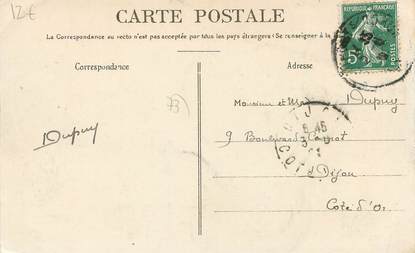 12€
CARTE POSTALE
RÉPUBLIQUE FRANÇAISE
La Correspondance au recto n'est pas acceptée par tous les pays étrangers (Se renseigner à la
5c
POSTES
Correspondance
Adresse
73
Monsieur et Me Dupuy
Dupuy
9 Boulevard Carnot
Dijon
Côte d'Or
5 45
3
COTE D'OR